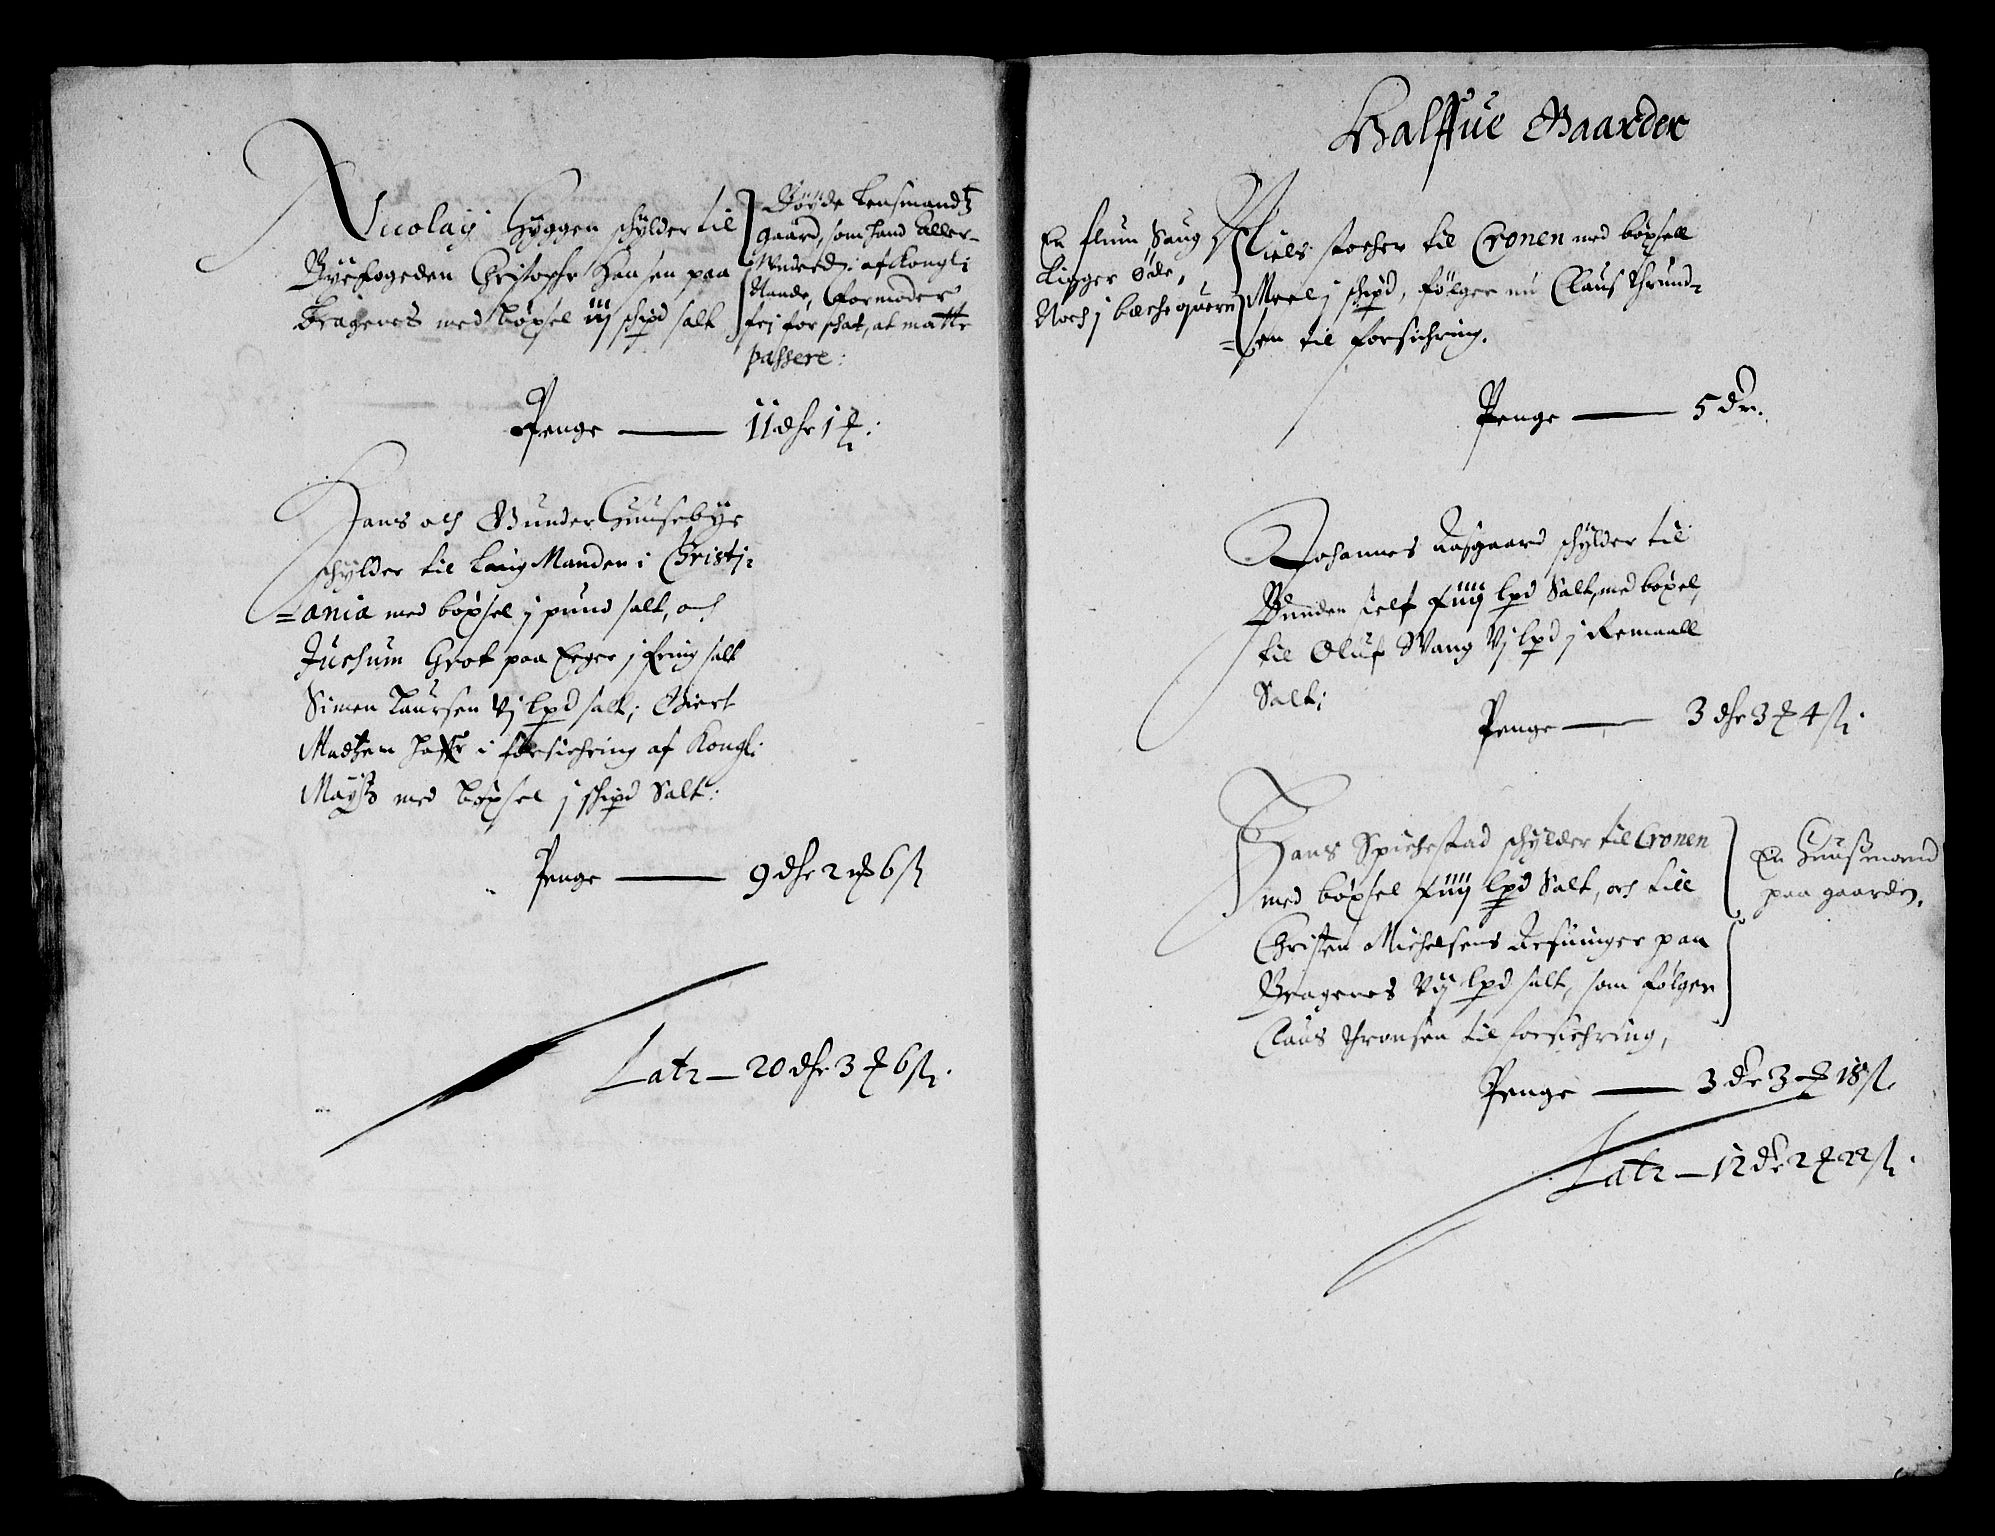 Nicolaÿ Hÿggen schÿlder til
Bÿefogeden Christopher Hansen paa
Bragenes med böxsel iij schipd salt
Böÿde Lensmandtz
gaard, som hand aller-
Vnderd: af Kongl:
Naade, Formoder
frj for schat, at motte
passere:
Penge — 11 dlr 1 ℔:
Hans och Gunder Huusebÿe
schÿlder til Laug Manden i Christj=
=ania med böxsel j pund salt, och
Juchum Grot paa Eger j fring salt
Simen Laursen vj lpd salt; Giert
Madtzen haffr i forsichring af Kongl:
Maÿtz med böxsel j schipd Salt:
Penge — 9 dlr 2 ℔ 6 ß
Latr — 20 dlr 3 ℔ 6 ß.
Halffue Gaarder
En flum Saug
Ligger öde,
Noch j becke quern
Niels Stocher til Cronen med böxsell
Meel j schipd, følger nu Claus Thrund=
=sen til forsichring.
Penge — 5 dr.
Johannes Aasgaard schÿlder til
Bunden self fiiij lpd Salt, med böxel,
til Oluf Wang vj lpd j Remaall
Salt;
Penge — 3 dlr 3 ℔ 4 ß.
Hans Spichestad schÿlder til Cronen
med böxsel fiiij lpd Salt, och till
Christen Michelsens Arfuinger paa
Bragenes vij lpd salt, som følger
Claus Thronsen til forsichring,
En Huusmand
paa gaarden.
Penge — 3 dr 3 ℔ 18 ß.
Latr — 12 dr 2 ℔ 22 ß.